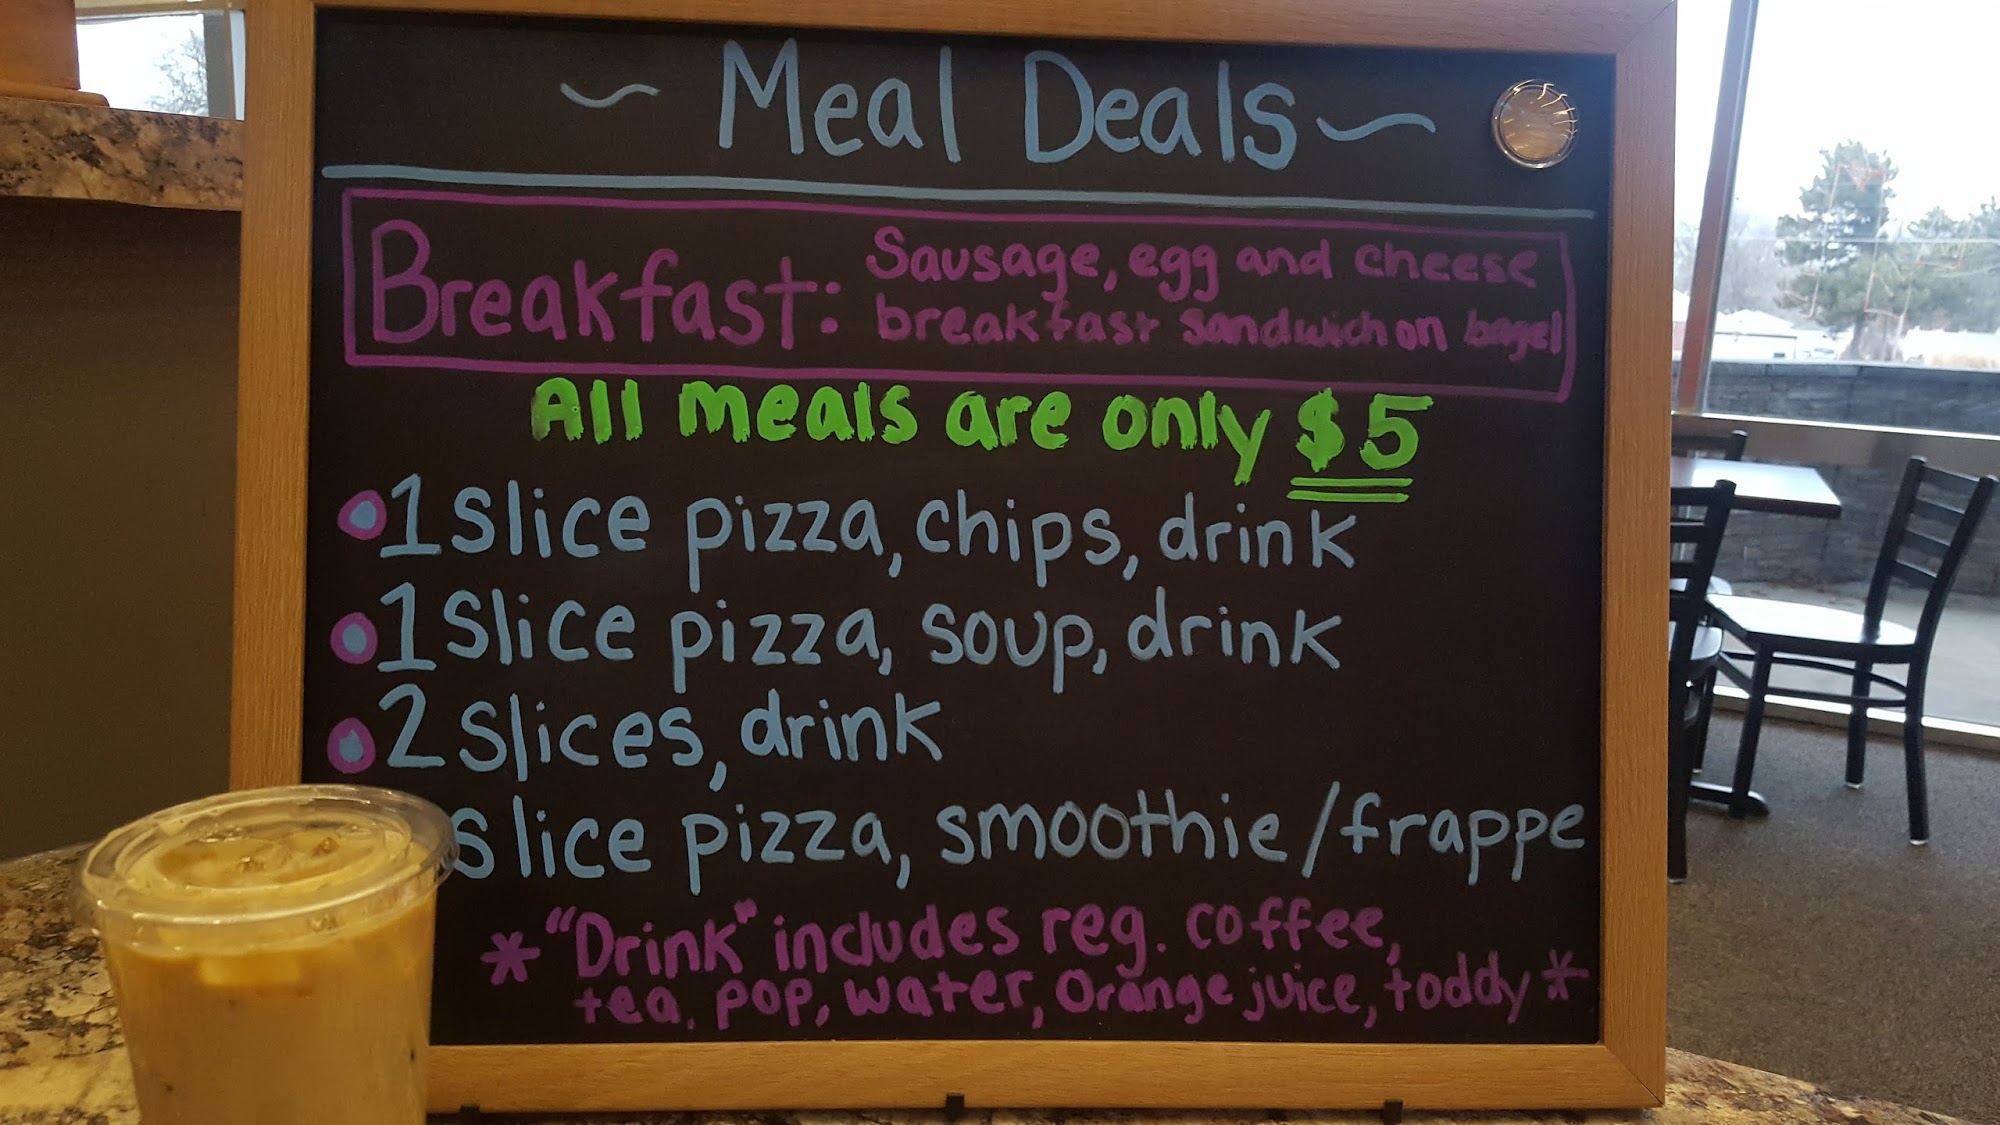 ~ Meal Deals ~
Breakfast: Sausage, egg and cheese
breakfast sandwich on bagel
All meals are only $5
• 1 slice pizza, chips, drink
• 1 slice pizza, soup, drink
• 2 slices, drink
slice pizza, smoothie/frappe
* "Drink" includes reg. coffee,
tea, pop, water, orange juice, toddy *